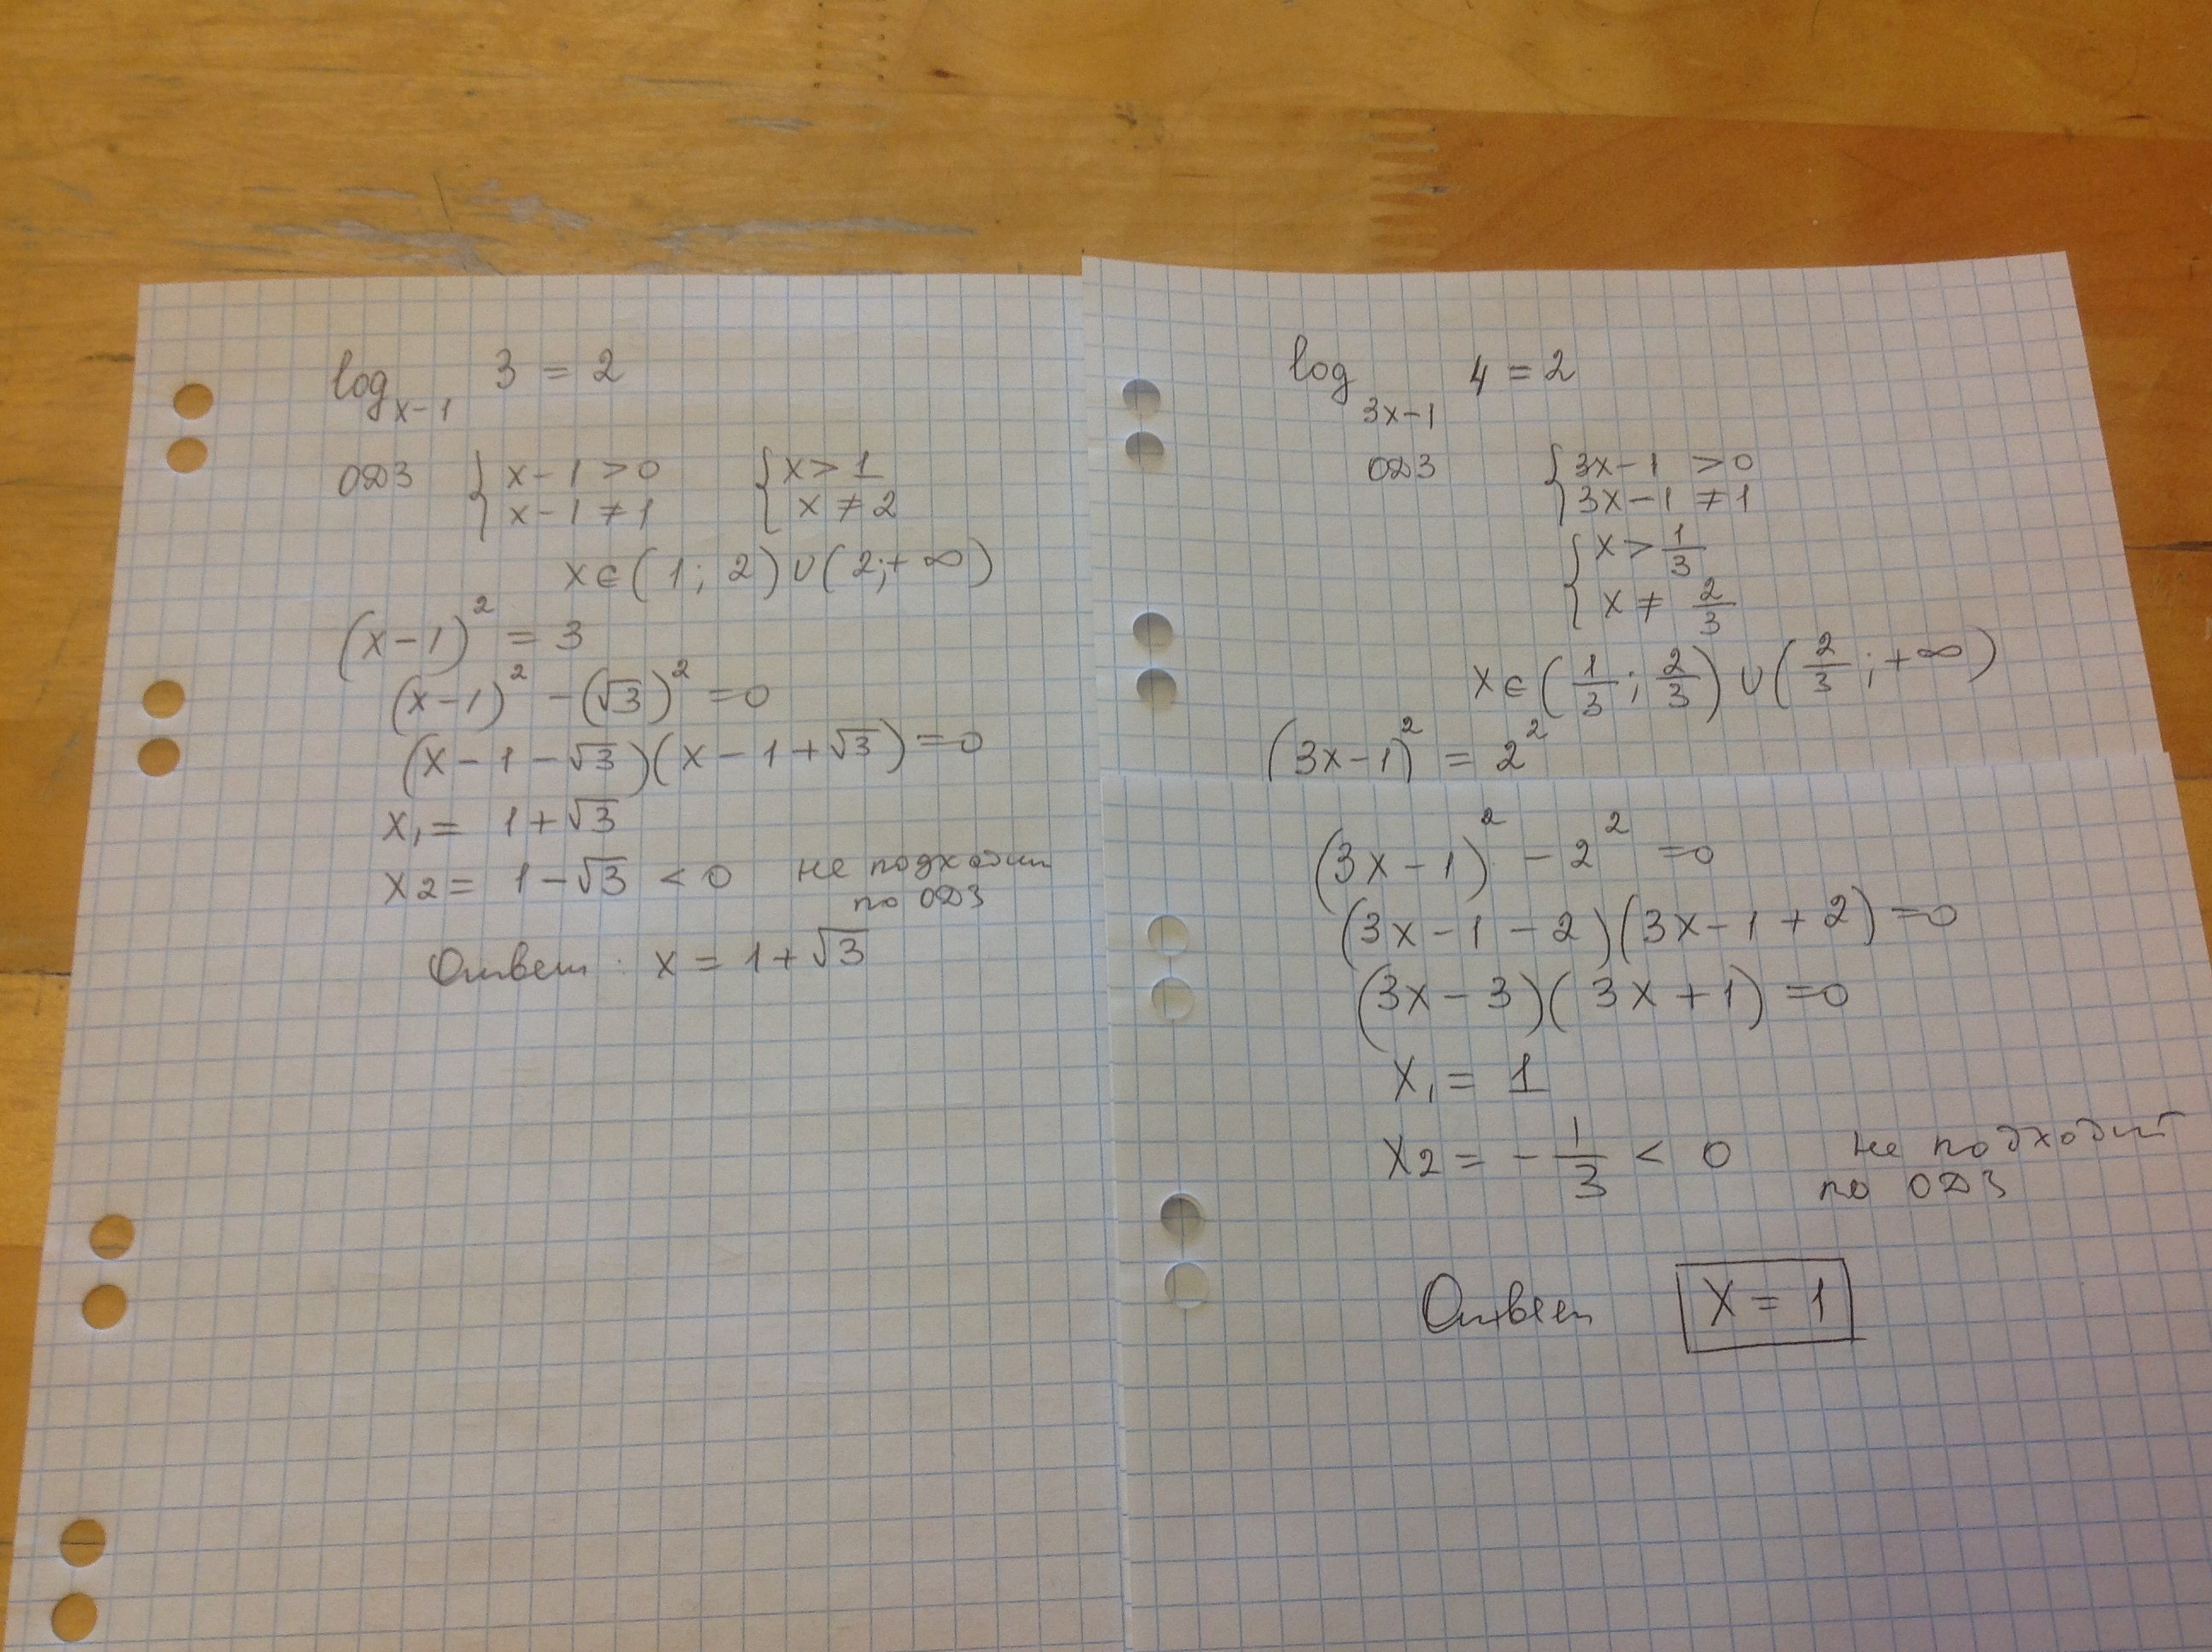 log_{x-1} 3 = 2
ОДЗ { x-1 > 0 { x > 1
x-1 ≠ 1 x ≠ 2
x ∈ (1; 2) ∪ (2; +∞)
(x-1)² = 3
(x-1)² - (√3)² = 0
(x-1-√3)(x-1+√3) = 0
x₁ = 1+√3
x2 = 1-√3 < 0 не подходит
по ОДЗ
Ответ: x = 1+√3
log_{3x-1} 4 = 2
ОДЗ { 3x-1 > 0
3x-1 ≠ 1
{ x > 1/3
x ≠ 2/3
x ∈ (1/3; 2/3) ∪ (2/3; +∞)
(3x-1)² = 2²
(3x-1)² - 2² = 0
(3x-1-2)(3x-1+2) = 0
(3x-3)(3x+1) = 0
x₁ = 1
x2 = -1/3 < 0 не подходит
по ОДЗ
Ответ x = 1